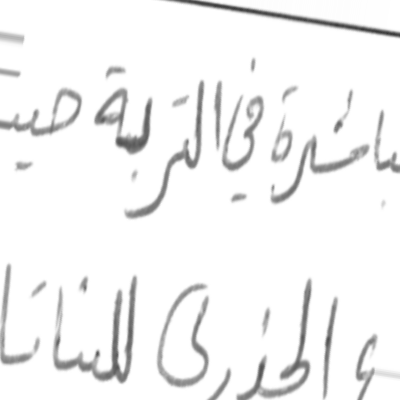 مباشرة في التربة حيث
ع الجذرى للنباتا